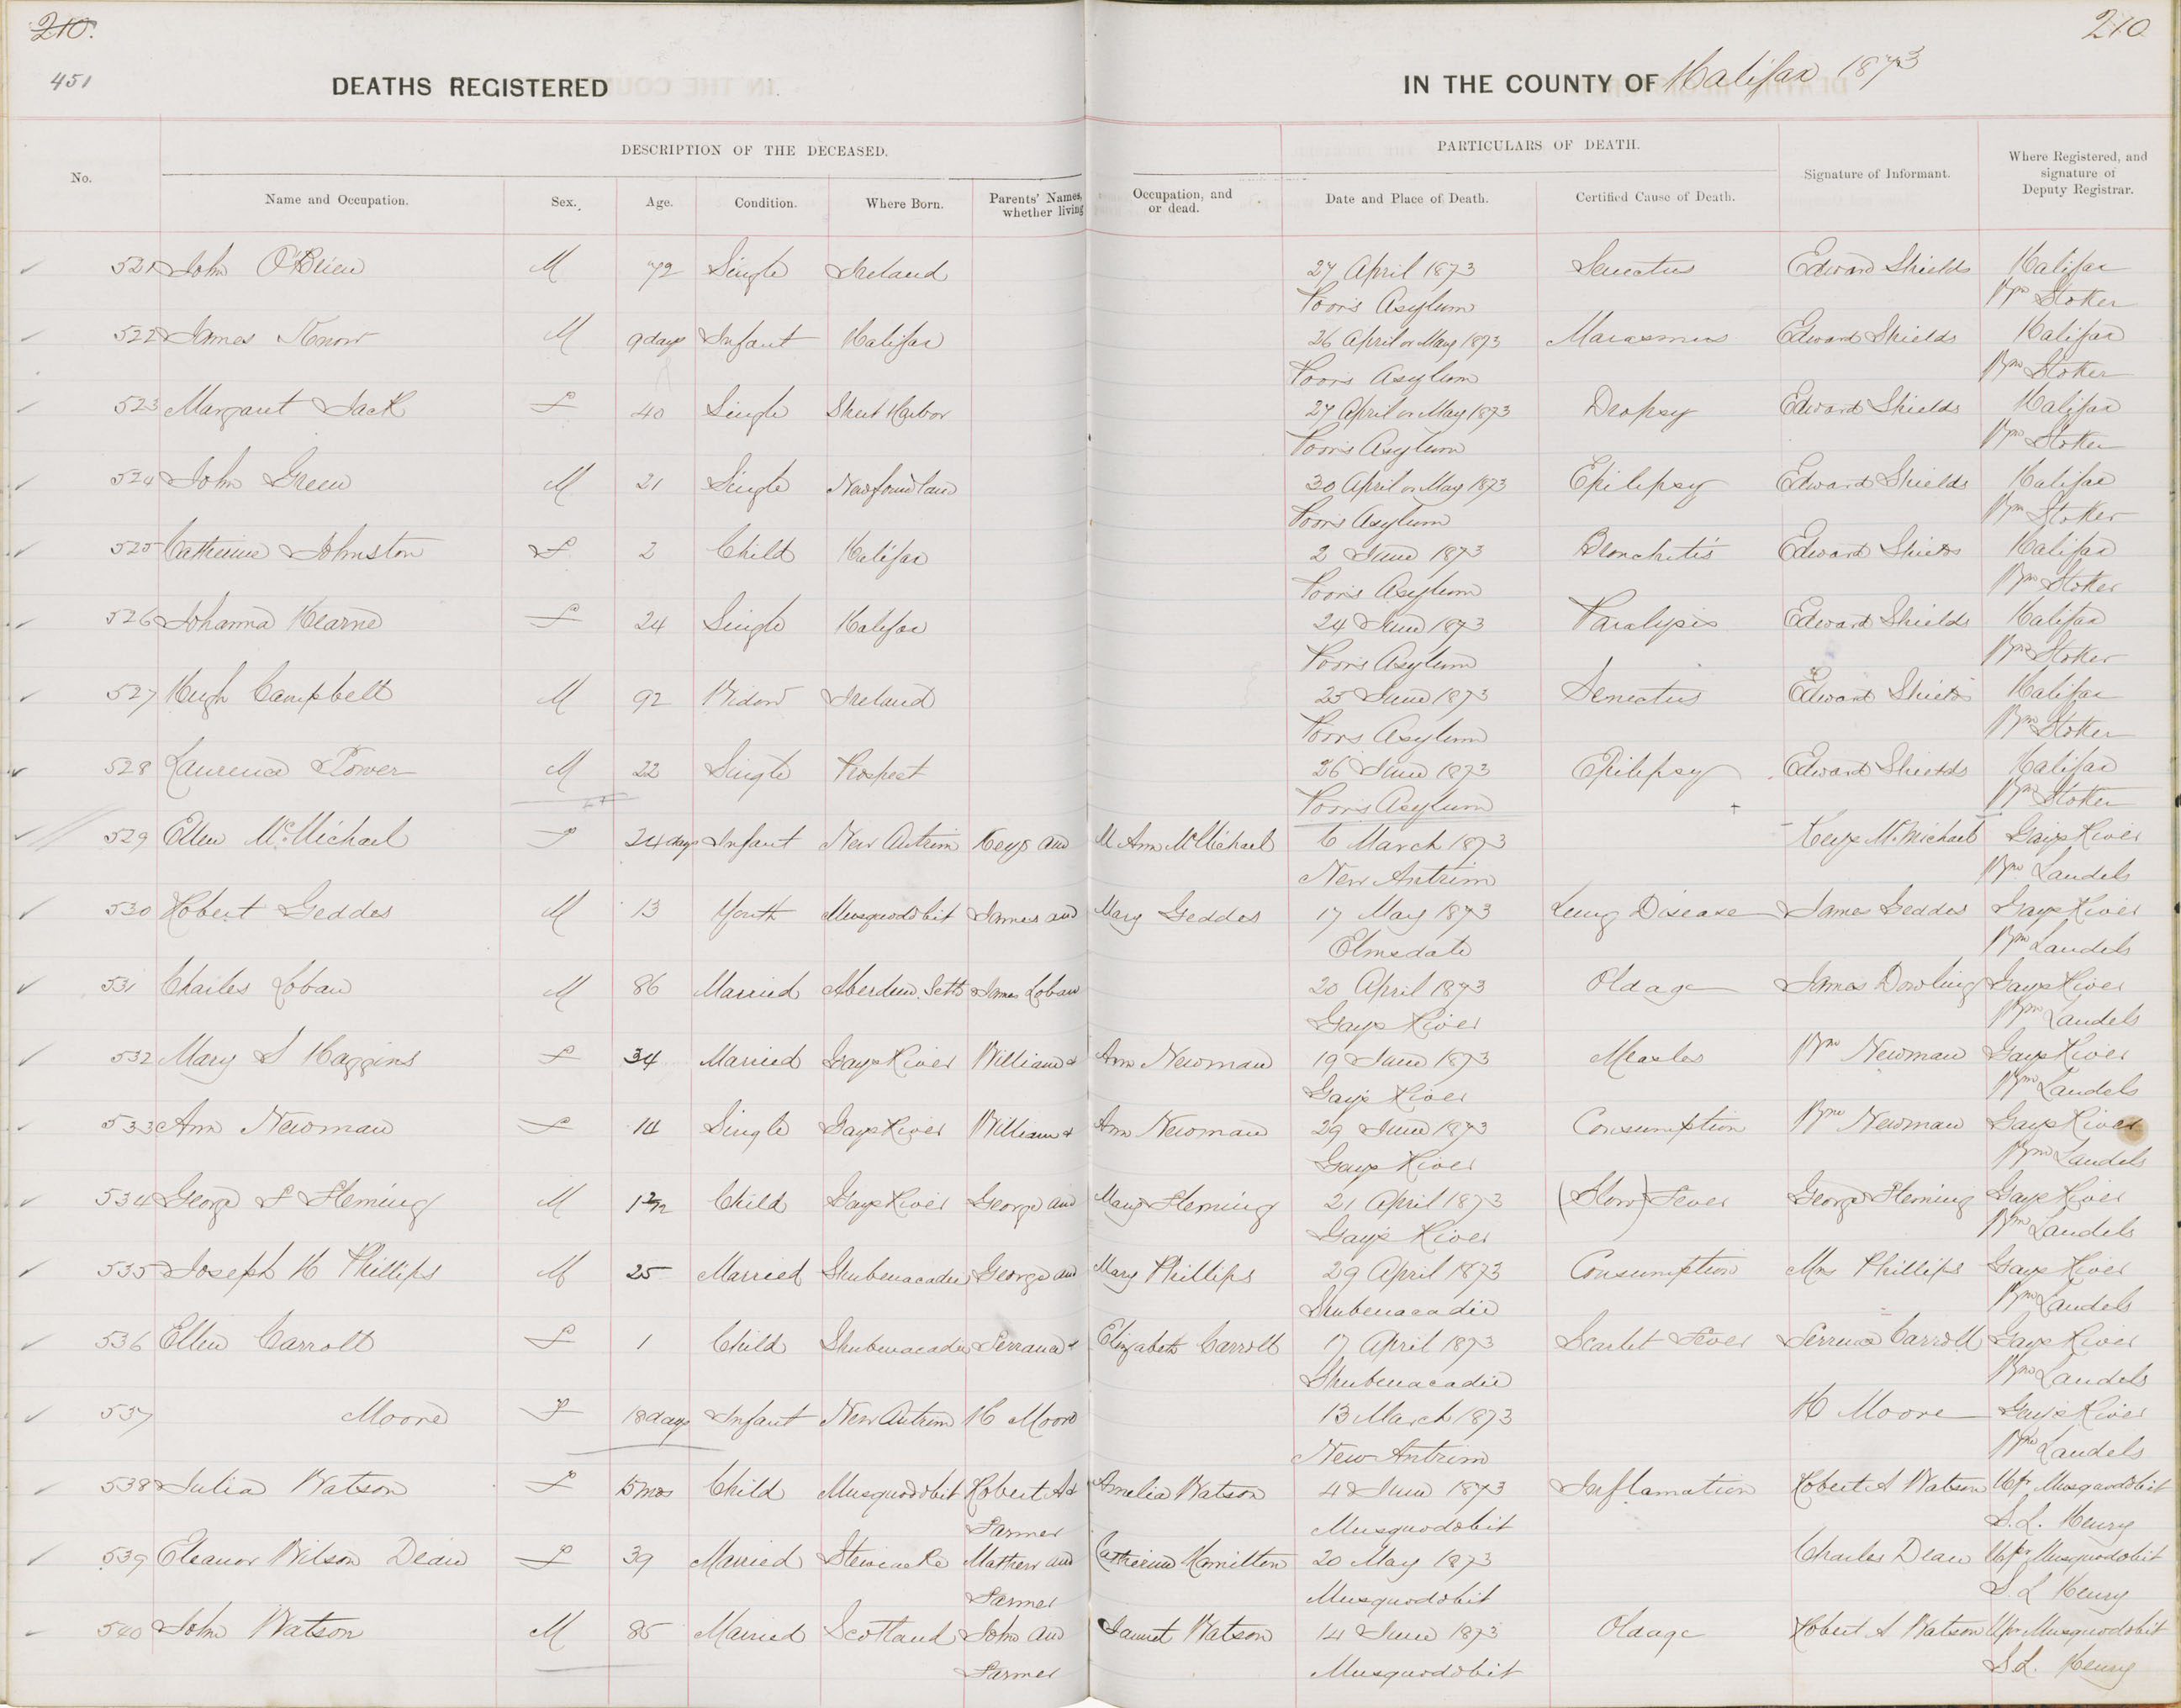 210.
210
451
DEATHS REGISTERED
IN THE COUNTY OF Halifax 1873
No.
DESCRIPTION OF THE DECEASED.
PARTICULARS OF DEATH.
Signature of Informant.
Where Registered, and signature of Deputy Registrar.
Name and Occupation.
Sex.
Age.
Condition.
Where Born.
Parents' Names, whether living
Occupation, and or dead.
Date and Place of Death.
Certified Cause of Death.
521 John O'Brien M 72 Single Ireland 27 April 1873 Senectus Edward Shields Halifax
Poor's Asylum Wm Stoker
522 James Know M 9 days Infant Halifax 26 April or May 1873 Marasmus Edward Shields Halifax
Poor's Asylum Wm Stoker
523 Margaret Jack F 40 Single Sheet Harbor 27 April or May 1873 Dropsy Edward Shields Halifax
Poor's Asylum Wm Stoker
524 John Green M 21 Single Newfoundland 30 April or May 1873 Epilepsy Edward Shields Halifax
Poor's Asylum Wm Stoker
525 Catherine Johnston F 2 Child Halifax 2 June 1873 Bronchitis Edward Shields Halifax
Poor's Asylum Wm Stoker
526 Johanna Hearne F 24 Single Halifax 24 June 1873 Paralysis Edward Shields Halifax
Poor's Asylum Wm Stoker
527 Hugh Campbell M 92 Widow Ireland 25 June 1873 Senectus Edward Shields Halifax
Poors Asylum Wm Stoker
528 Laurence Power M 22 Single Prospect 26 June 1873 Epilepsy Edward Shields Halifax
Poor's Asylum Wm Stoker
529 Ellen McMichael F 24 days Infant New Antrim Keys and M Ann McMichael 6 March 1873 Keys McMichael Gays River
New Antrim Wm Landels
530 Robert Geddes M 13 Youth Musquodobit James and Mary Geddes 17 May 1873 Lung Disease James Geddes Gays River
Elmsdale Wm Landels
531 Charles Loban M 86 Married Aberdeen Scttd James Loban 20 April 1873 Old age James Dowling Gays River
Gays River Wm Landels
532 Mary S Haggins F 34 Married Gays River William & Ann Newman 19 June 1873 Measles Wm Newman Gays River
Gay's River Wm Landels
533 Ann Newman F 14 Single Gays River William & Ann Newman 29 June 1873 Consumption Wm Newman Gays River
Gays River Wm Landels
534 George F Fleming M 1 2/12 Child Gays River George and Mary Fleming 21 April 1873 (Slow) Fever George Fleming Gays River
Gay's River Wm Landels
535 Joseph H Phillips M 25 Married Shubenacadie George and Mary Phillips 29 April 1873 Consumption Mrs Phillips Gays River
Shubenacadie Wm Landels
536 Ellen Carroll F 1 Child Shubenacadie & Elizabeth Carroll 17 April 1873 Scarlet Fever Carroll Gays River
Shubenacadie Wm Landels
537 Moore F 18 days Infant New Antrim H Moore 13 March 1873 H Moore Gay's River
New Antrim Wm Landels
538 Julia Watson F 15 mos Child Musquodobit Robert A & Amelia Watson 4 June 1873 Inflamation Robert A Watson Upr Musquodobit
Farmer Musquodobit S. L. Henry
539 Eleanor Wilson Dean F 39 Married Stewiacke Mathew and Catherine Hamilton 20 May 1873 Charles Dean Upr Musquodobit
Farmer Musquodobit S L Henry
540 John Watson M 85 Married Scotland John and Janet Watson 14 June 1873 Old age Robert A Watson Upr Musquodobit
Farmer Musquodobit S L. Henry